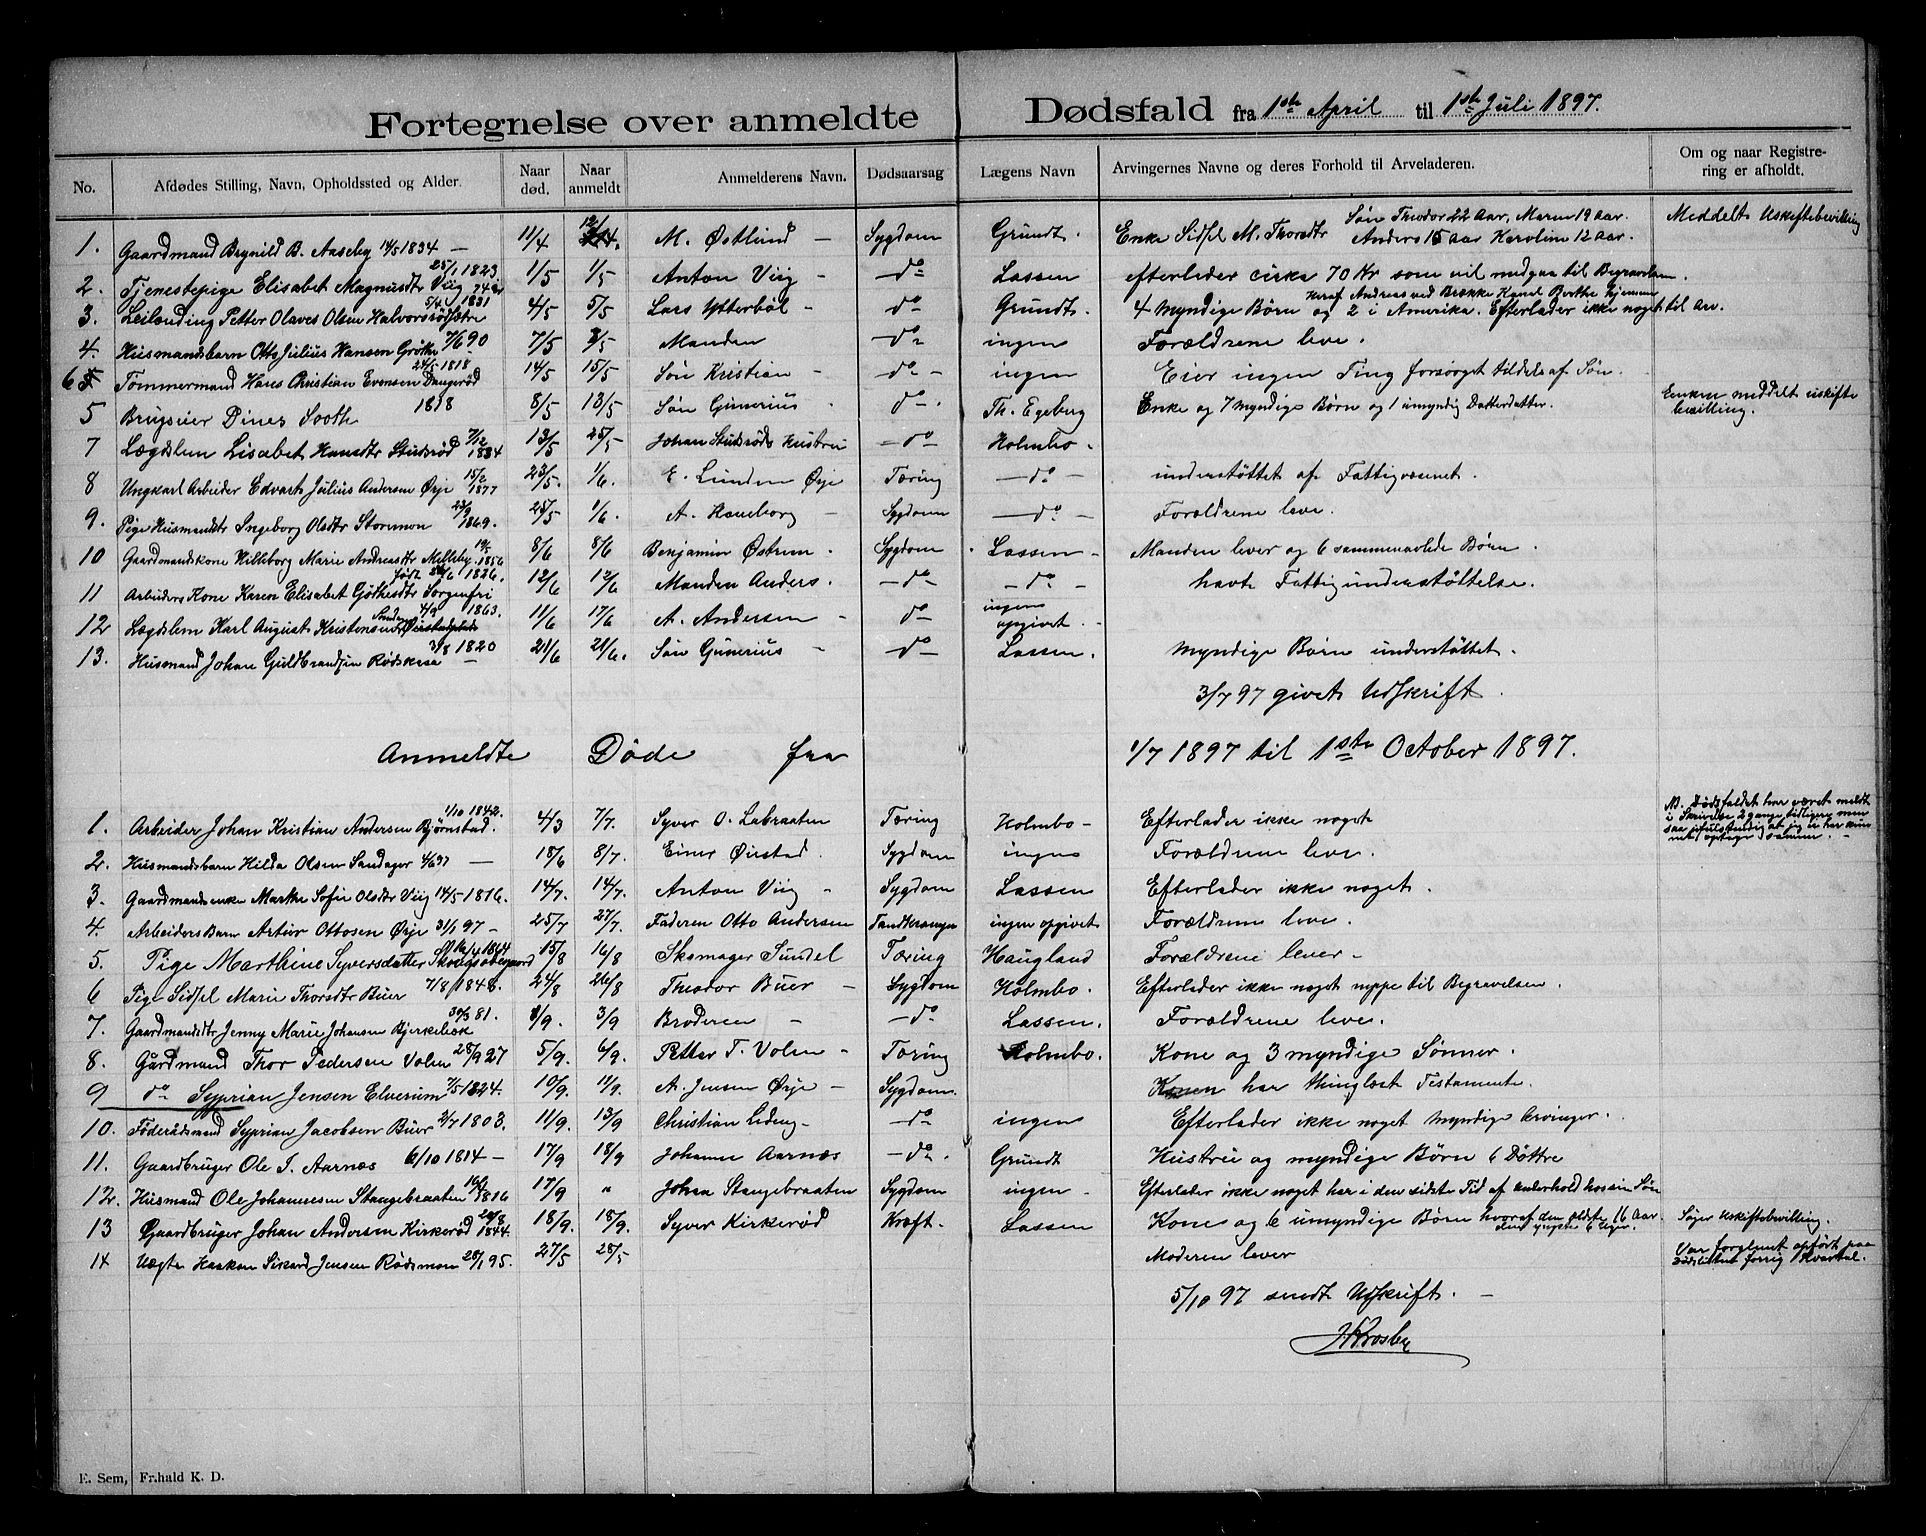 Fortegnelse over anmeldte Dødsfald fra 1ste April til 1ste Juli 1897.
No. Afdødes Stilling, Navn, Opholdssted og Alder. Naar død. Naar anmeldt Anmelderens Navn. Dødsaarsag Lægens Navn Arvingernes Navne og deres Forhold til Arveladeren. Om og naar Registrering er afholdt.
1. Gaardmand Brynild B. Aaseby 14/5 1834 — 11/4 12/4 M. Østlund — Sygdom Grundt. Enke Sidsel M. Thorsdtr Søn Theodor 22 Aar, Maren 19 Aar. Anders 15 Aar Karoline 12 Aar. Meddelt Uskiftebevilling
2. Tjenestepige Elisabet Magnusdtr Viig 25/1 1823 74 Aar 1/5 1/5 Anton Viig - do Lassen efterlader cirka 70 Kr som vil medgaa til Begravelsen.
3. Leilending Petter Olaves Olsen Halvorsrødsætre 5/4 1831 4/5 5/5 Lars Ytterbøl - do Grundt. 4 myndige Børn heraf Andreas ved Brække Kanal Berthe hjemme og 2 i Amerika. Efterlader ikke noget til arv.
4. Husmandsbarn Otto Julius Hansen Grøtte 7/6 90 7/5 8/5 Manden do ingen Forældrene leve.
6 Tømmermand Hans Christian Evensen Daugerød 24/5 1818 14/5 15/5 Søn Kristian - do - ingen Eier ingen Ting forsørget tildels af Søn.
5 Brugseier Dines Sooth 1818 8/5 13/5 Søn Gunerius - do - Th. Egeberg Enke og 7 myndige Børn og 1 umyndig Datterdatter. Enken meddelt uskifte bevilling.
7 Lægdslem Lisabet Hansdtr Stuksrød 7/12 1834 13/5 25/5 Johan Stuksrøds Hustru - do - Holmbo -
8 Ungkarl Arbeider Edvart Julius Andersen Ørje 15/2 1877 23/5. 1/6. E. Lunden Ørje Tæring - do - understøttet af Fattigvæsenet.
9. Pige Husmandsdtr Ingeborg Olsdtr Stormon 23/9 1869. 25/5 1/6. A. Haneborg - Sygdom - do - Forældrene leve.
10 Gaardmandskone Hilleborg Marie Andreasdtr Melleby 19/5 1856 8/6 8/6 Benjamin Østrem. Sygdom Lassen - Manden lever og 6 sammenavlede Børn.
11 Arbeiders Kone Karen Elisabet Gøthesdtr Sorgenfri født 1826. 12/6 12/6 Manden Anders. - do - - do - havte Fattigunderstøttelse.
12 Lægdslem Karl August Kristensen Sønder Ørstadplads 4/9 1863. 11/6 17/6 A. Andersen - do - ingen opgivet. -
13. Husmand Johan Guldbrandsen Rødskasa 3/8 1820 — 21/6 21/6. Søn Gunerius - do - Lassen. myndige Børn understøttet.
3/7 97 givet Udskrift.
Anmeldte Døde fra 1/7 1897 til 1ste October 1897.
1. Arbeider Johan Kristian Andersen Bjørnstad. 1/10 1842. 4/3 7/7. Syver O. Labraaten Tæring Holmbo - Efterlader ikke noget NB. Dødsfaldet har været meldt i Skrivelse 2 gange tidligere men saa ufulstendig at jeg ei har kunnet optage samme. -
2. Husmandsbarn Hilda Olsen Sandager 4/6 97 — 18/6 8/7. Einer Ørstad. Sygdom ingen Forældrene leve.
3. Gaardmandsenke Marthe Sofie Olsdtr Viig 14/5 1816. 14/7. 14/7. Anton Viig - Sygdom Lassen Efterlader ikke noget.
4. Arbeiders Barn Artur Ottosen Ørje 31/1 97 - 25/7 27/7. Faderen Otto Andersen Tandkramper ingen opgivet Forældrene leve.
5. Pige Marthine Syversdatter 1864 15/8 16/8 Skomager Sundel Tæring Haugland Forældrene lever -
6 Pige Sidsel Marie Thorsdtr Buer 7/8 1848. 24/8 26/8 Theodor Buer - Sygdom Holmbo. Efterlader ikke noget neppe til Begravelsen.
7. Gaardmandsdtr Jenny Marie Johansen Bjerkebæk 30/3 81. 1/9. 3/9 Broderen - - do - Lassen. Forældrene leve.
8. Gårdmand Thor Pedersen Volen 28/9 27 5/9. 6/9. Petter T. Volen - Tæring Holmbo. Kone og 3 myndige Sønner.
9 do Syprian Jensen Elverum 7/5 1824. 10/9. 11/9. A. Jensen Ørje - Sygdom. Konen har thinglæst Testamente.
10. Føderådsmand Syprian Jacobsen Buer 2/7 1803. 11/9. 13/9 Christian - do - ingen Efterlader ikke noget myndige Arvinger.
11. Gaardbruger Ole J. Aarnæs 6/10 1814 - 17/9 18/9 Johanne Aarnæs - do - Grundt Hustru og myndige Børn 6 Døttre
12. Husmand Ole Johannesen Stangebraaten 1816 17/9 " Johan Stangebraaten Sygdom ingen - Efterlader ikke noget har i den sidste Tid af underhold hos sin Søn
13 Gaardbruger Johan Andersen Kirkerød 1844. 18/9. 18/9. Syver Kirkerød Kræft. Lassen Kone og 6 umyndige Børn hvoraf den ældste 16 Aar. den yngste 6 Uger. Søger Uskiftebevilling.
14 Ægte Haakon Sivard Jensen Rødsmon 28/1 95. 27/5 28/5 Moderen lever Var forglemt opført paa Dødslisten forrig Kvartal.
5/10 97 sendt Udskrift. —
E. Sem, Fr.hald K. D.